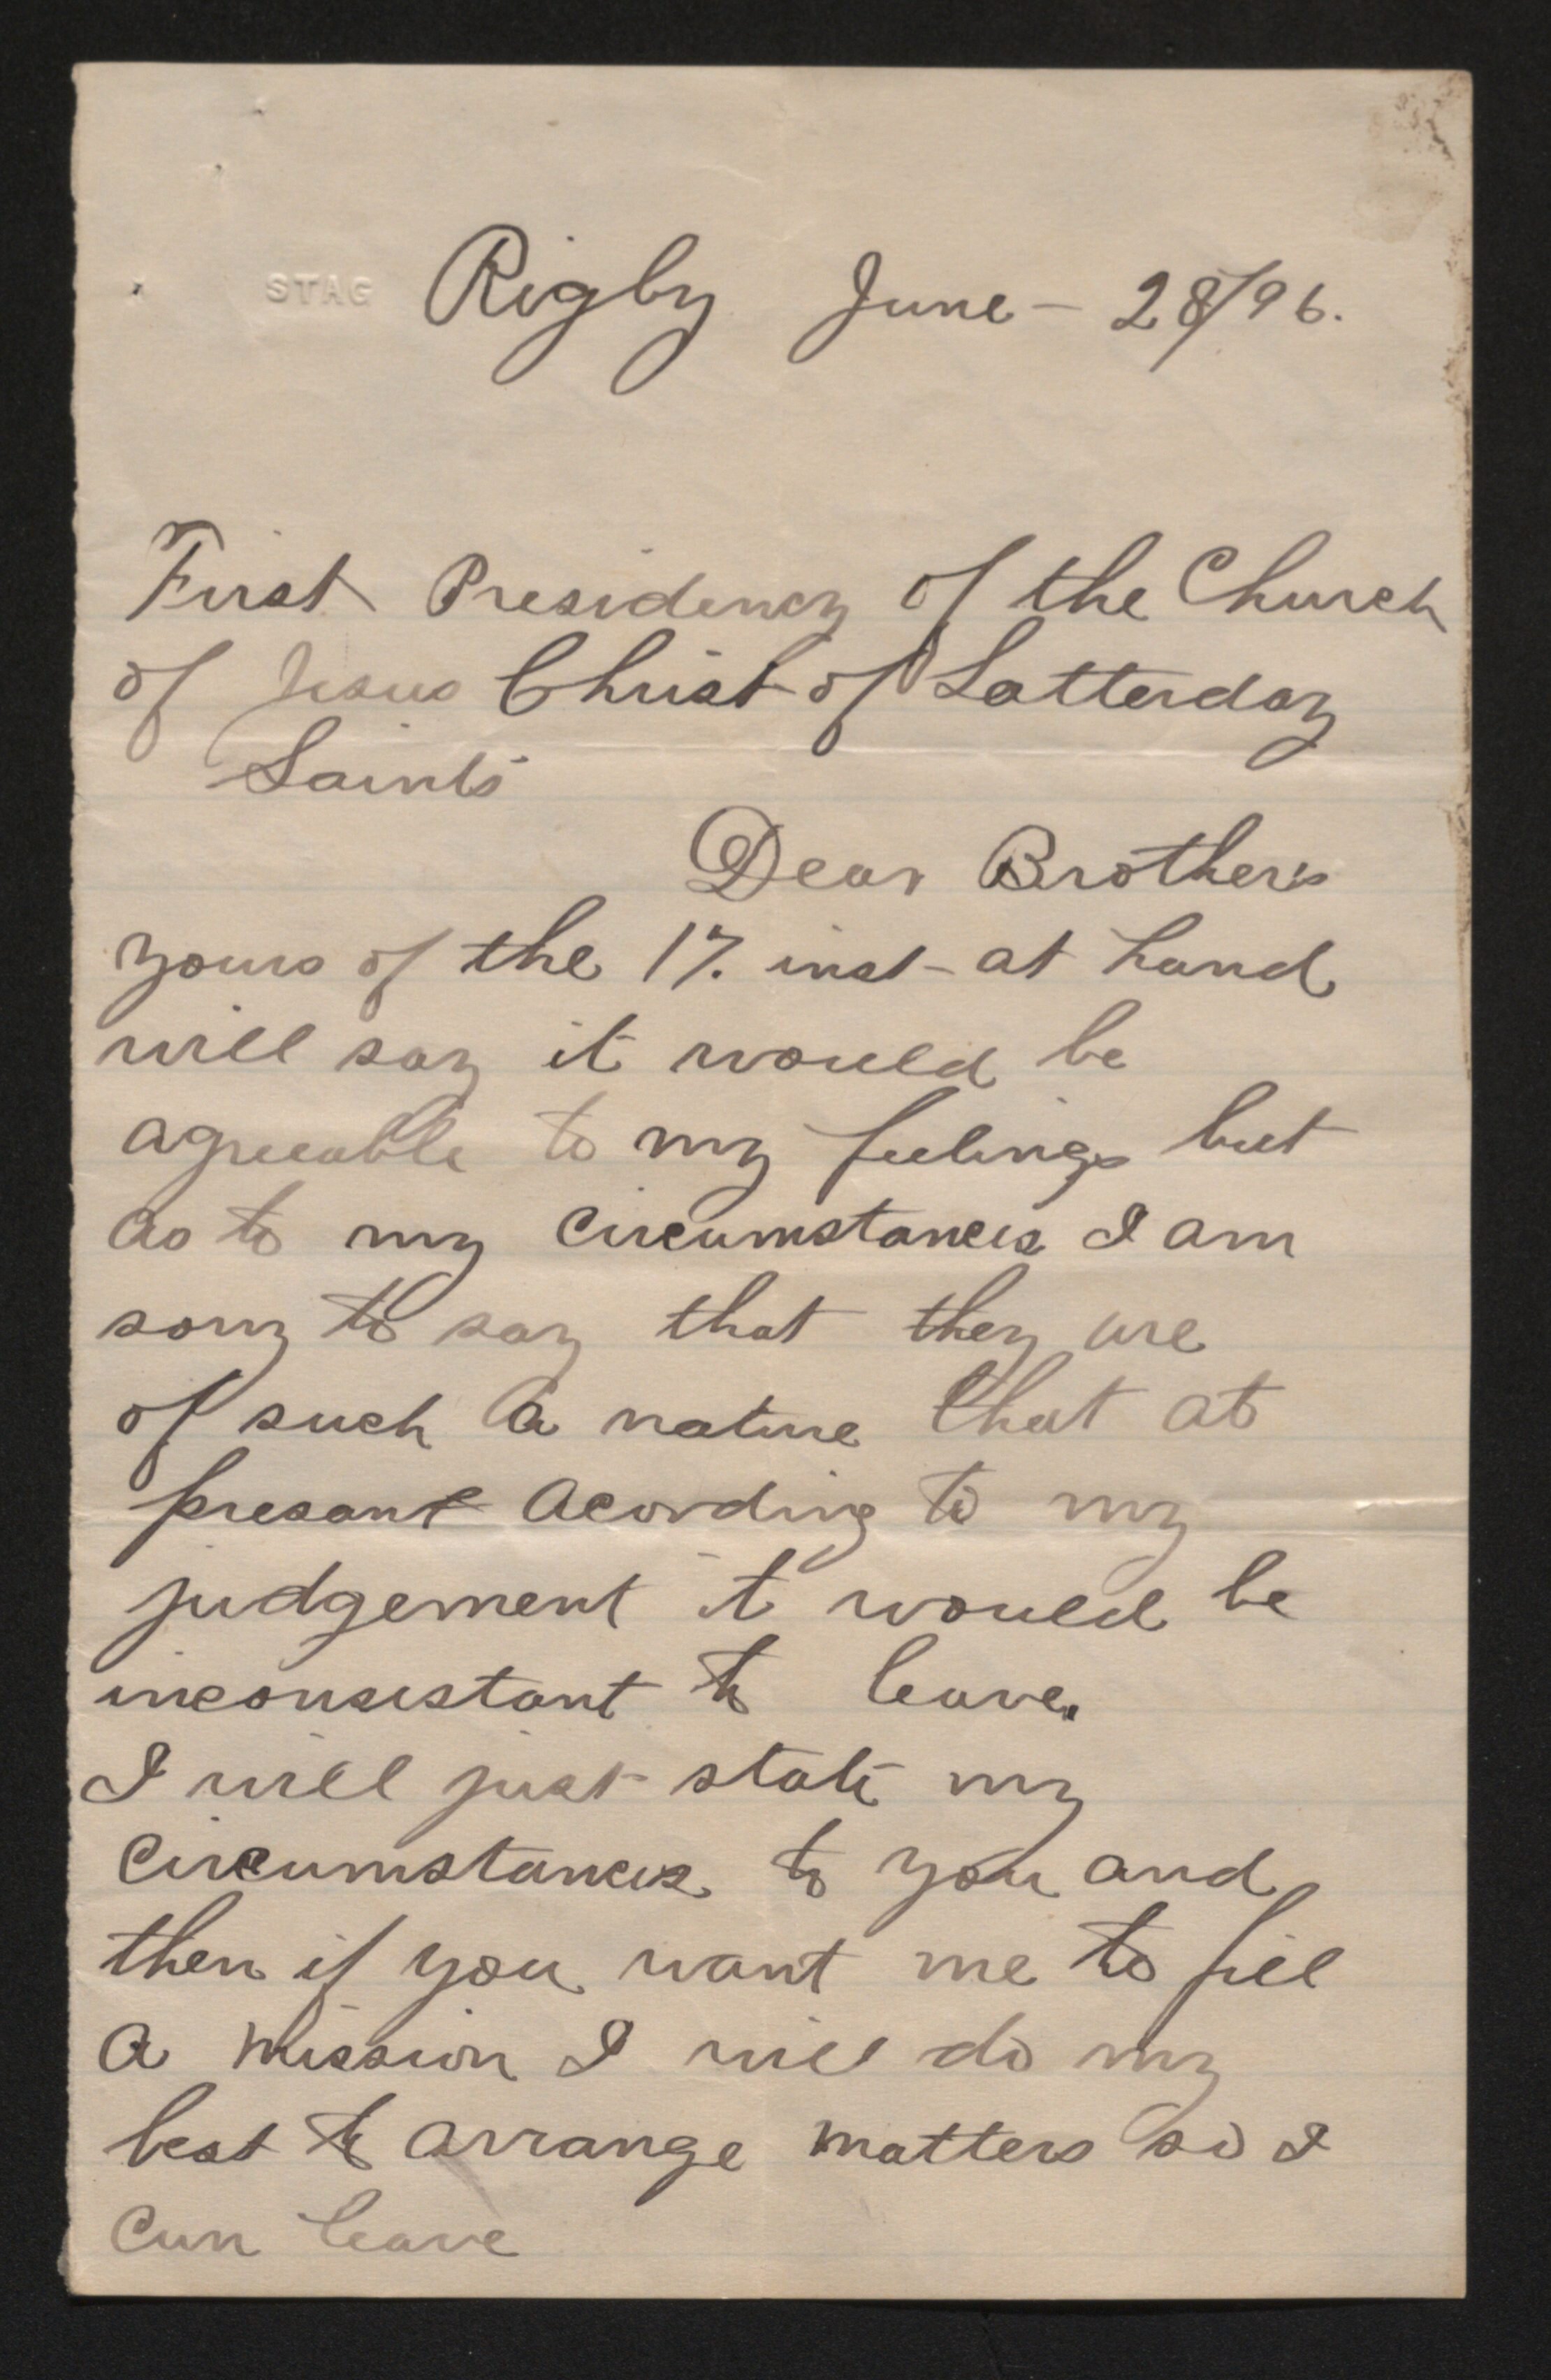 STAG
Rigby June - 28/96.
First Presidency of the Church
of Jesus Christ of Latterday
Saints
Dear Brothers
yours of the 17. inst - at hand
will say it would be
agreeable to my feelings but
as to my circumstances I am
sory to say that they are
of such a nature that at
presant acording to my
judgement it would be
inconsistant to leave.
I will just state my
circumstances to you and
then if you want me to fill
a mission I will do my
best to arrange matters so I
can leave